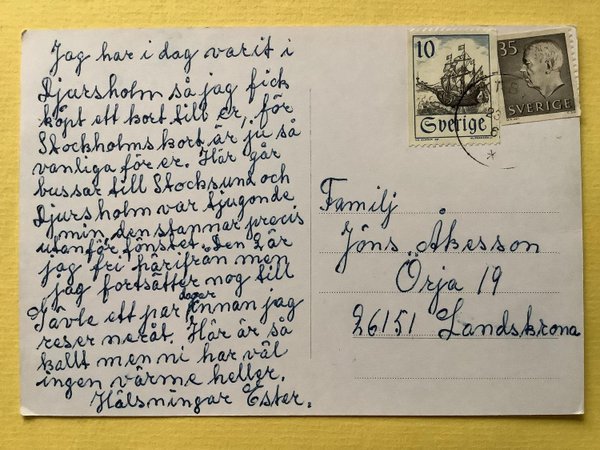 Jag har i dag varit i
Djursholm så jag fick
köpt ett kort till er, för
Stockholmskort är ju så
vanliga för er. Här går
bussar till Stocksund och
Djursholm var tjugonde
min, den stannar precis
utanför fönstret. Den 2 är
jag fri härifrån men
jag fortsätter nog till
Gävle ett par dagar innan jag
reser neråt. Här är så
kallt men ni har väl
ingen värme heller.
Hälsningar Ester.
10
Sverige
35
SVERIGE
Familj
Jöns Åkesson
Örja 19
26151 Landskrona